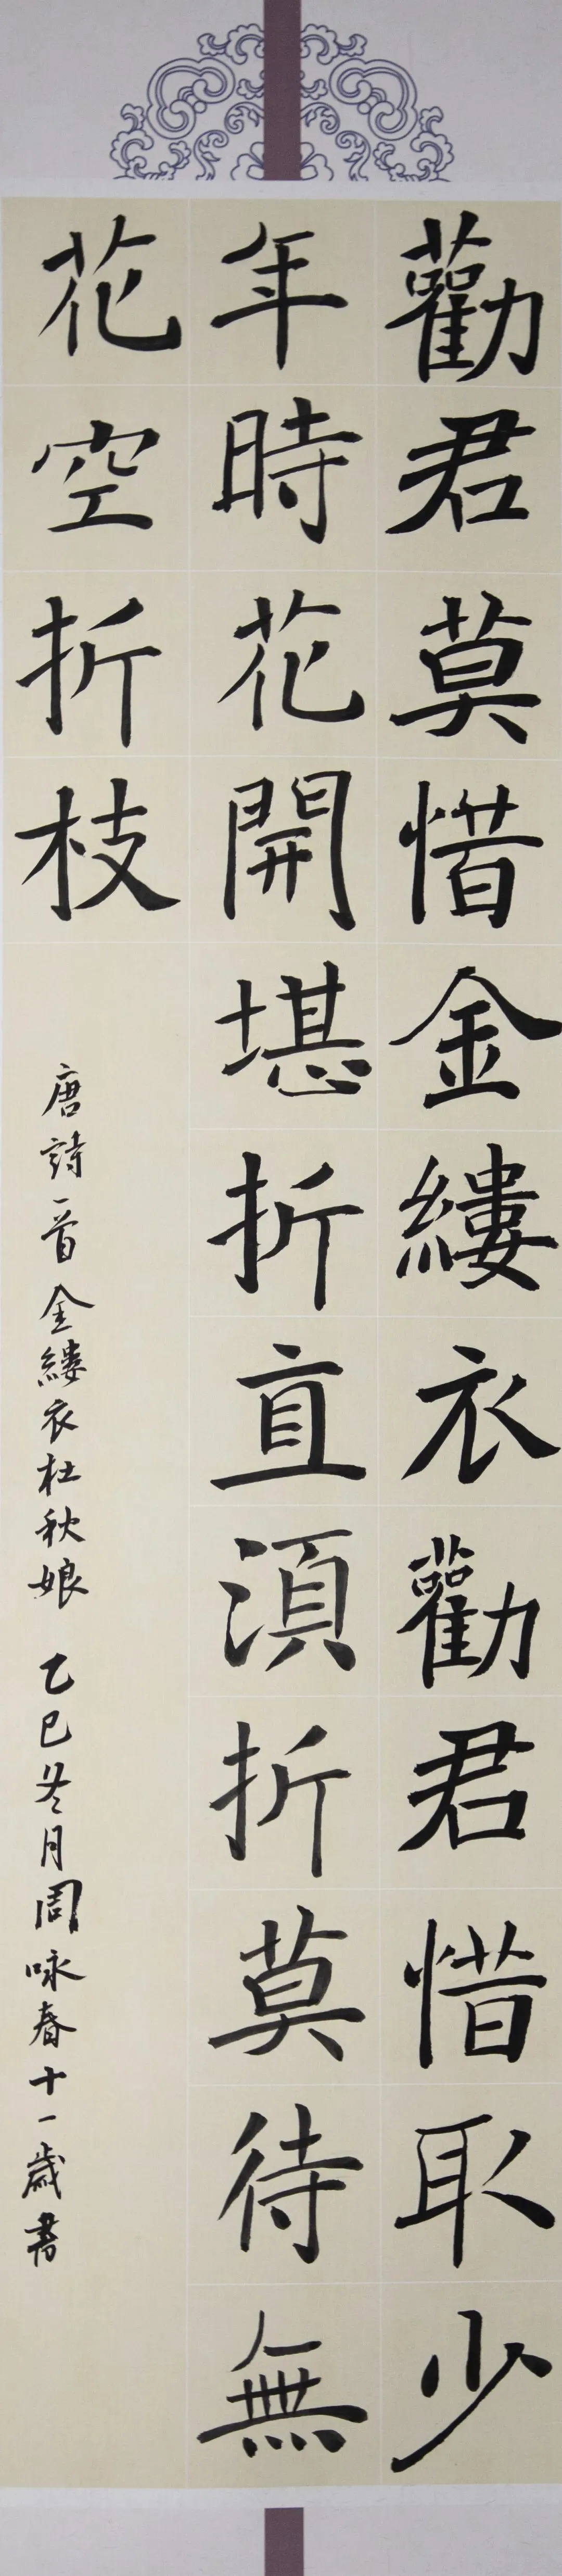 勸君莫惜金縷衣勸君惜取少
年時花開堪折直須折莫待無
花空折枝
唐詩一首金縷衣杜秋娘 乙巳冬月周咏春十一歲書